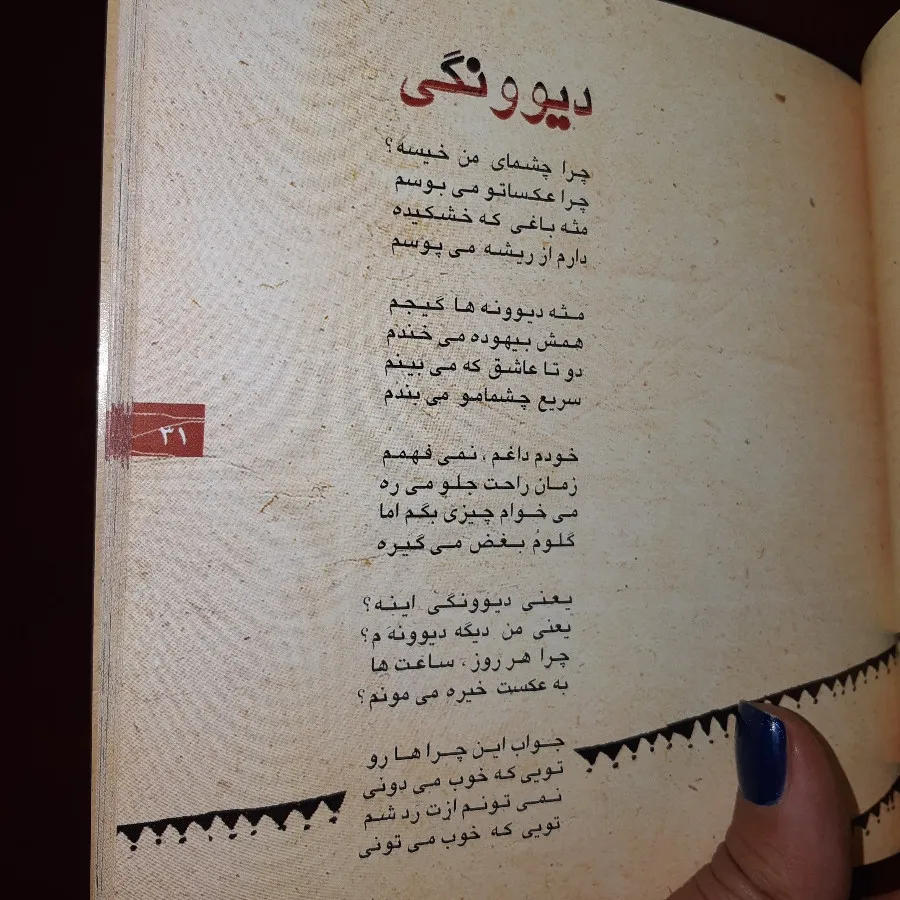 دیوونگی
چرا چشمای من خیسه؟
چرا عکساتو می بوسم
مثه باغی که خشکیده
دارم از ریشه می پوسم
مثه دیوونه ها گیجم
همش بیهوده می خندم
دو تا عاشق که می بینم
سریع چشمامو می بندم
خودم داغم، نمی فهمم
زمان راحت جلو می ره
می خوام چیزی بگم اما
گلومُ بغض می گیره
یعنی دیوونگی اینه؟
یعنی من دیگه دیوونه َم؟
چرا هر روز، ساعت ها
به عکست خیره می مونم؟
جواب این چرا ها رو
تویی که خوب می دونی
نمی تونم ازت رد شم
تویی که خوب می تونی
۳۱